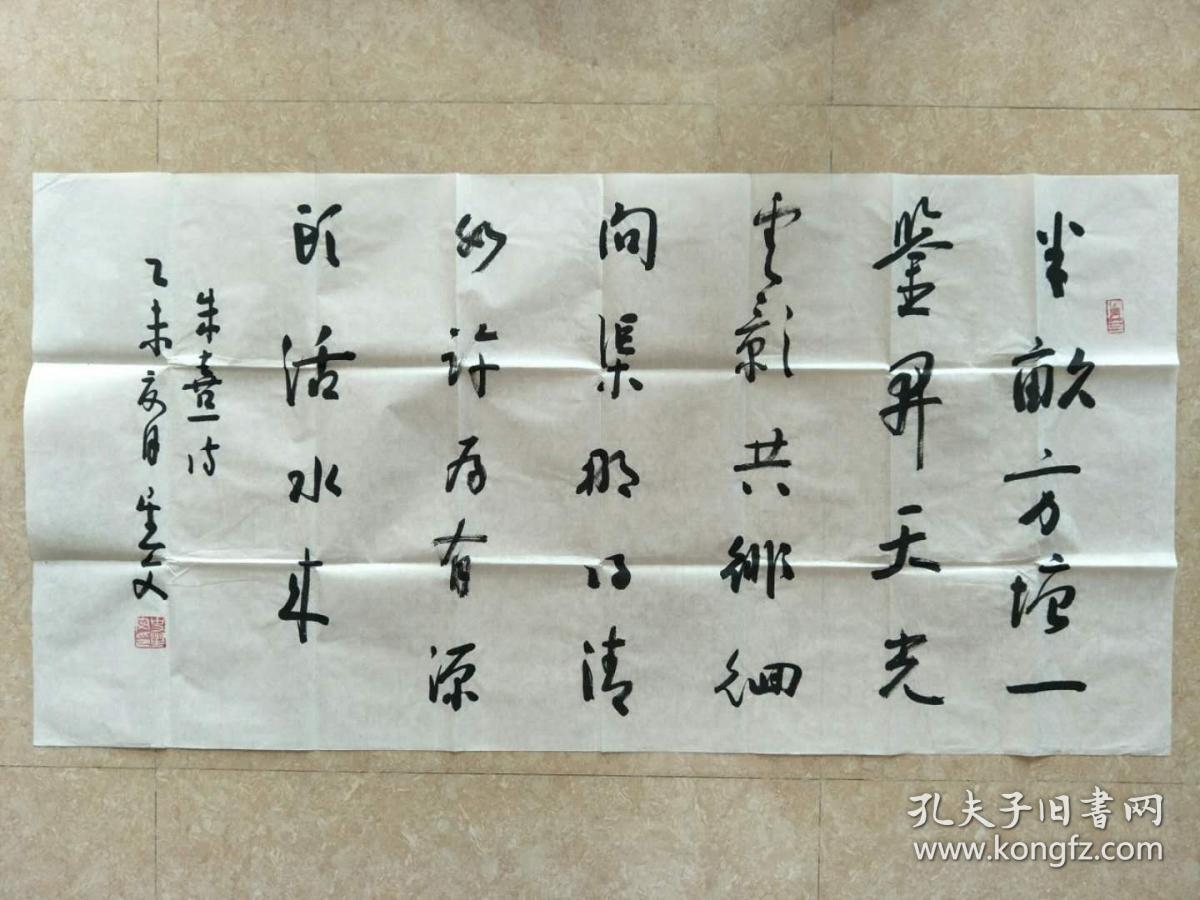 半畝方塘一
鉴開天光
雲影共徘徊
问渠那得清
如许为有源
头活水来
朱熹诗
乙未夏月
孔夫子旧书网
www.kongfz.com